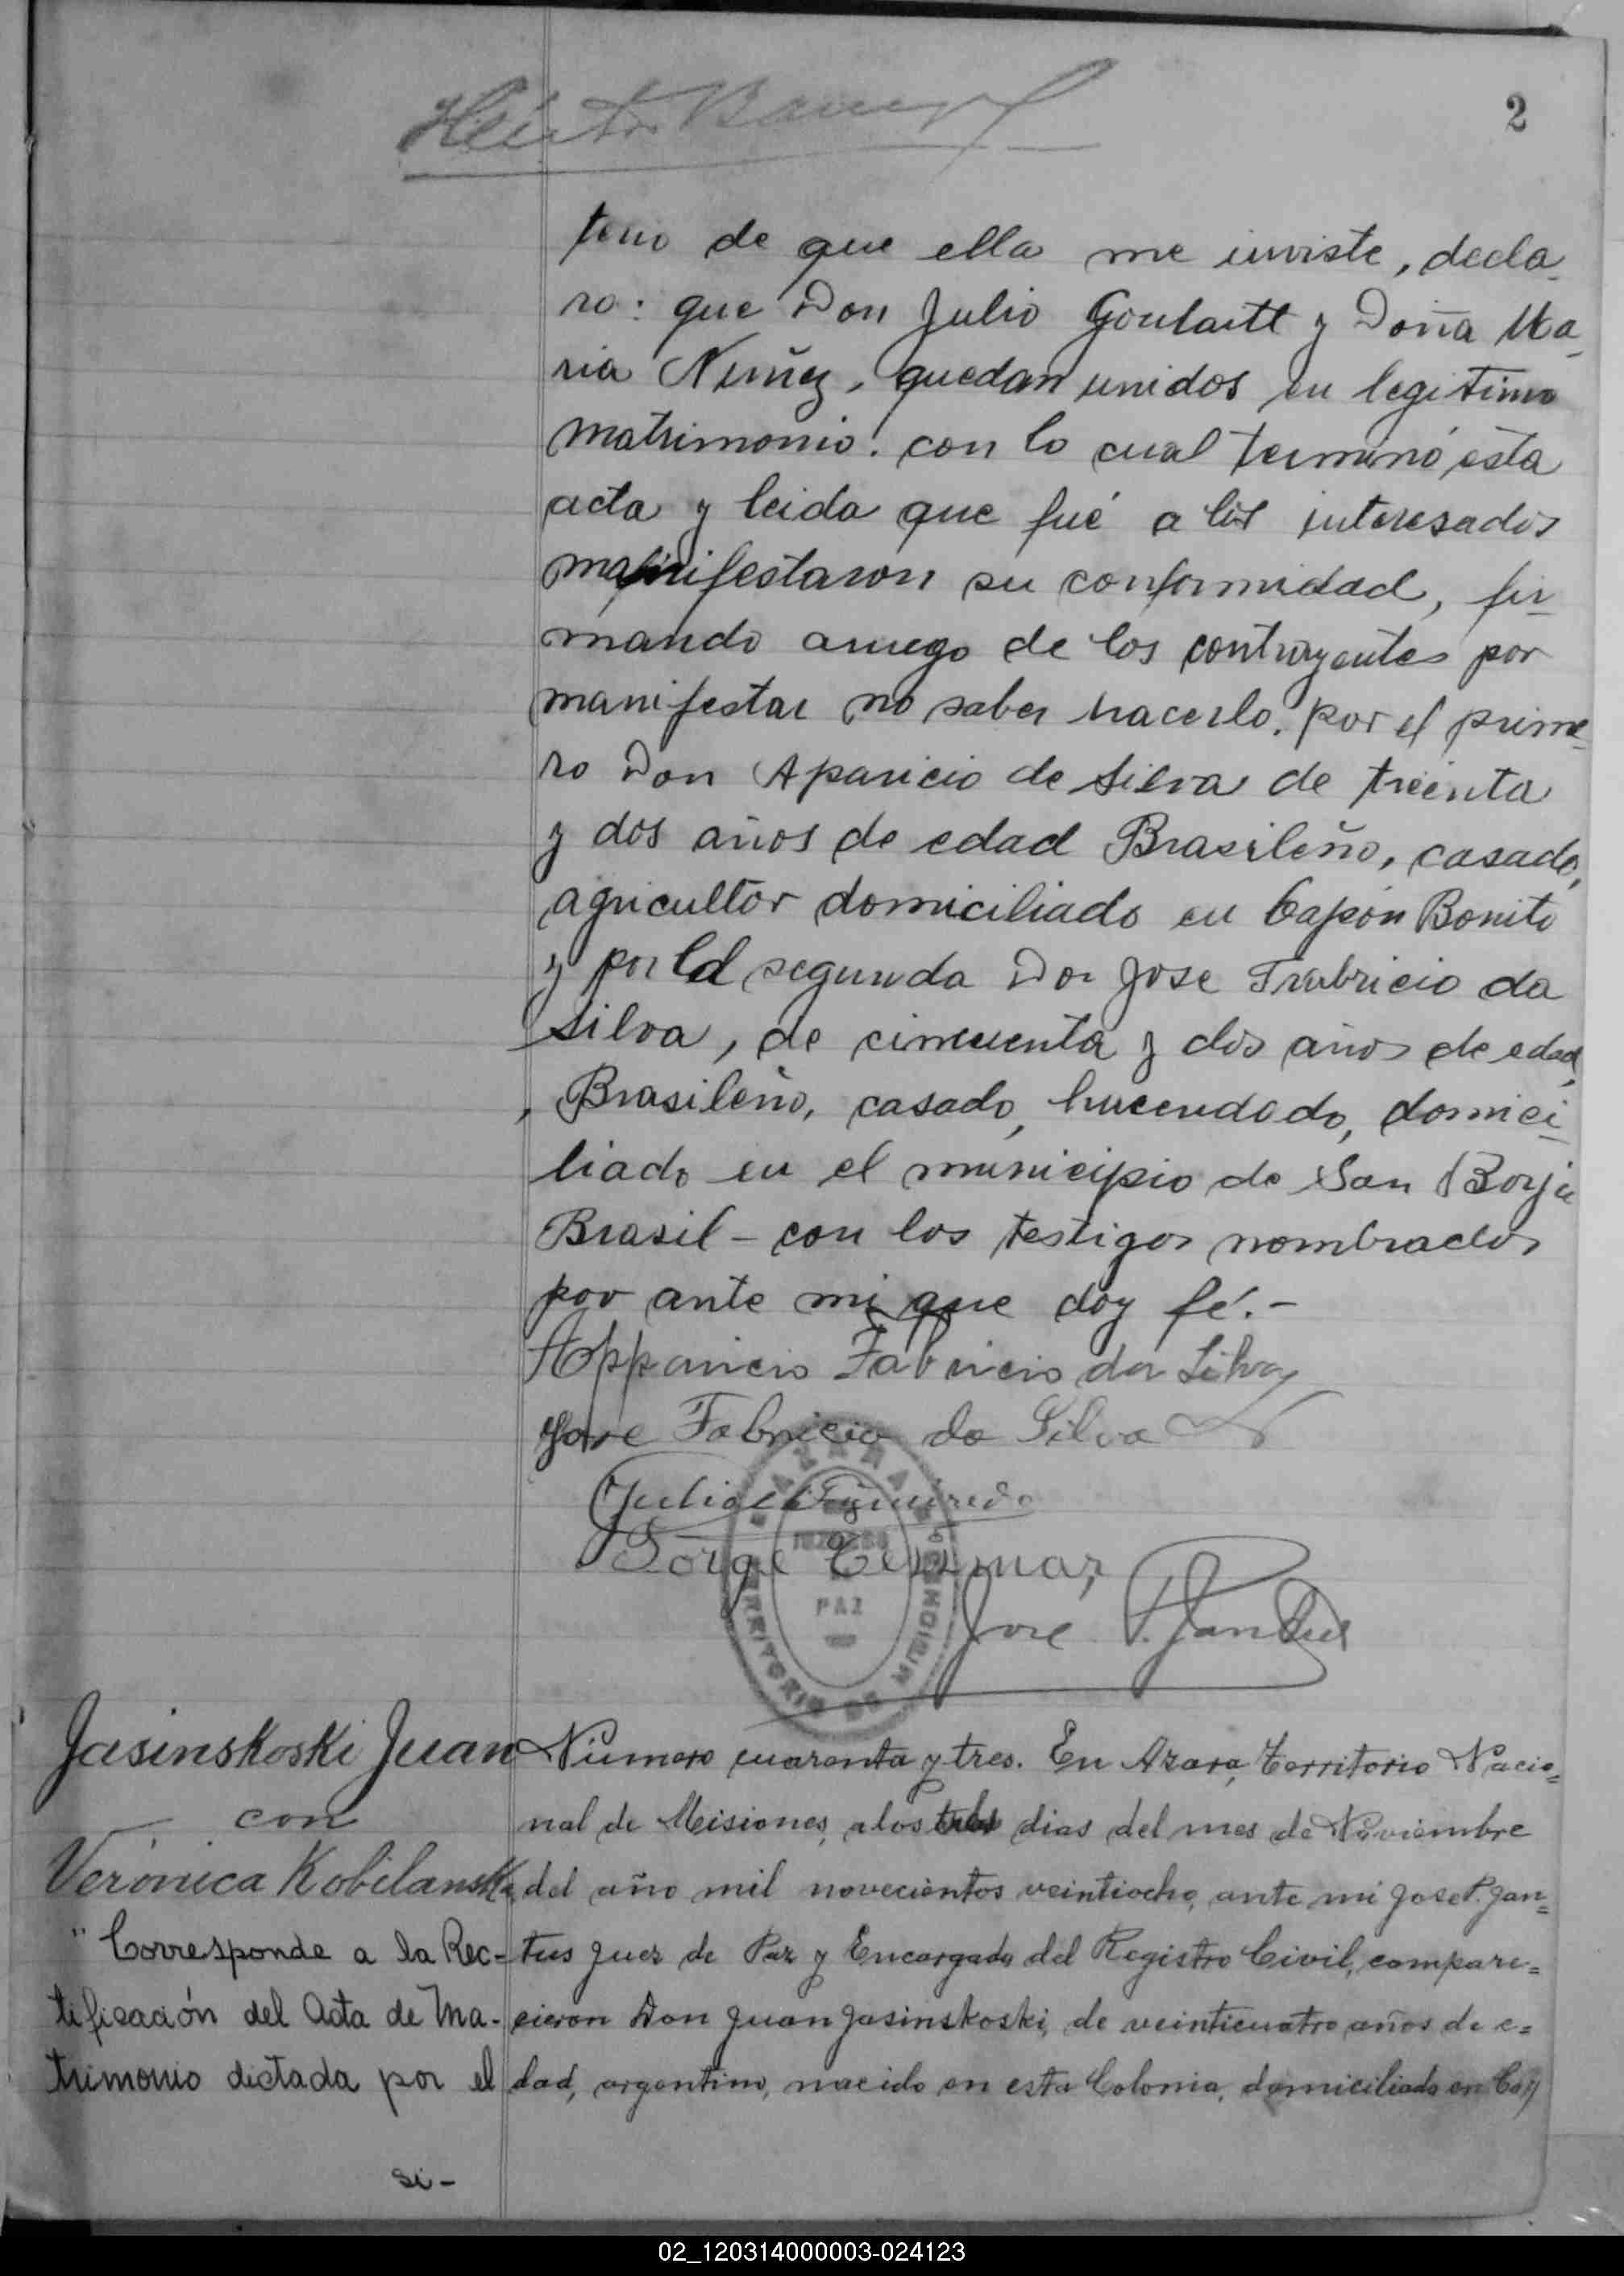 2
terio de que ella me inviste, decla-
ro: que Don Julio Goulartt y Doña Ma-
ria Nuñez, quedan unidos en legitimo
matrimonio. con lo cual terminó esta
acta y leida que fué a los interesados
manifestaron su conformidad, fir-
mando aruego de los contrayentes por
manifestar no saber hacerlo, por el prime-
ro Don Aparicio de Silva de treinta
y dos años de edad Brasileño, casado,
agricultor domiciliado en Capón Bonito
y por la segunda Don Jose Frabricio da
Silva, de cincuenta y dos años de edad,
Brasileño, casado, hacendado, domici-
liado en el municipio de San Borja
Brasil - con los testigos nombrados
por ante mi que doy fé.-
Apparicio Fabricio da Silva
Jose Fabricio da Silva
Jorge
José P. Jantus
PAZ
TERRITORIO DE MISIONES
Jasinskoski Juan
con
Verónica Kobilanska
"Corresponde a la Rec-
tificación del Acta de Ma-
trimonio dictada por el
si-
Número cuarenta y tres. En Azara, Territorio Nacio=
nal de Misiones, a los tres dias del mes de Noviembre
del año mil novecientos veintiocho, ante mi Jose P. Jan=
tus Juez de Paz y Encargado del Registro Civil, compare=
cieron Don Juan Jasinskoski, de veinticuatro años de e=
dad, argentino, nacido en esta Colonia, domiciliado en
02_120314000003-024123